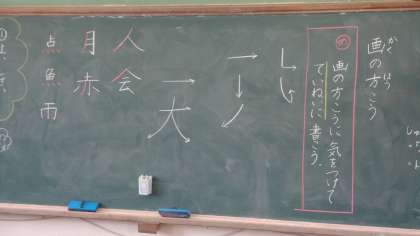 画の方こう
かく ほう
め
画の方こうに気をつけて
ていねいに書こう。
大
人会
月赤
点魚雨